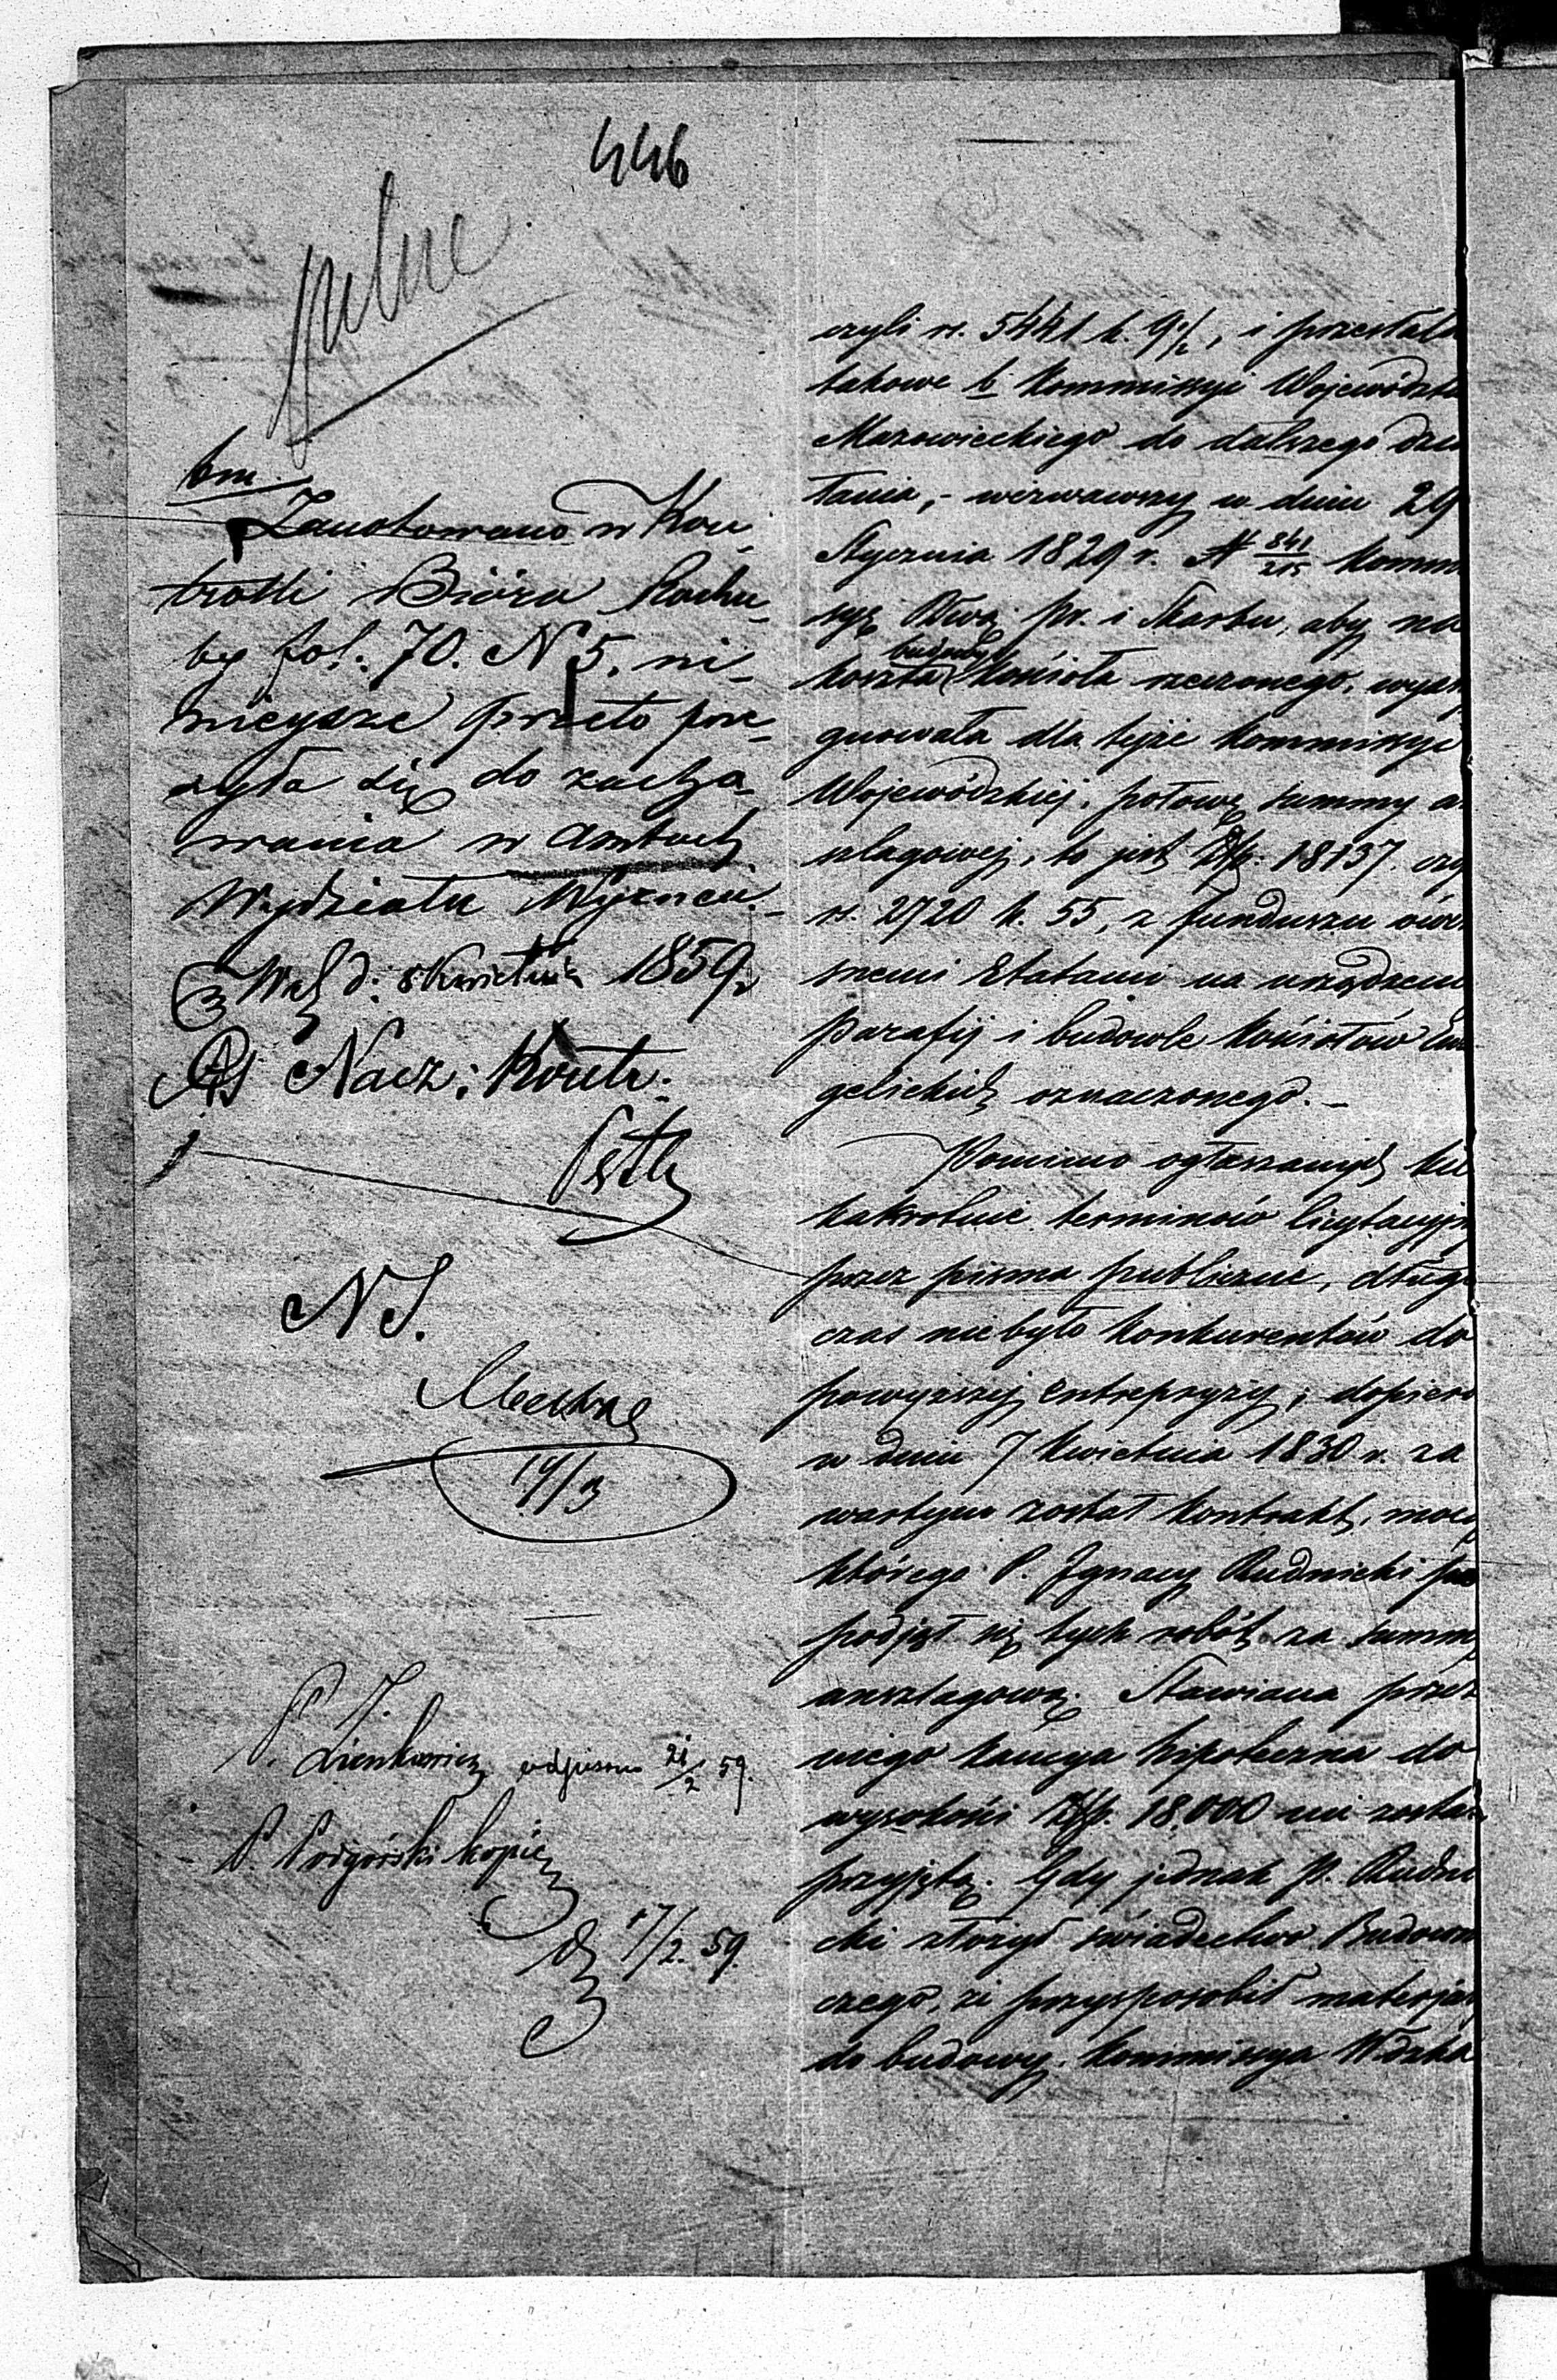 446
pilne
bm.
Zanotowano w Kon-
trolli Bióra Rachu-
by fol: 70. N 5. ni-
nieysze przeto prze-
syła się do zacho-
wania w aktach
Wydziału Wyznań
d: 8 Kwietnia 1859 r
Nacz: Kontr.
N S.
14/3
P. J.
Zienkowicz odpisano 21/2 59.
P. Podgórski kopię
17/2. 59.
czyli rs. 5441 k. 9 1/2, i przesłała
takowe b. Kommissyi Wojewódz
Mazowieckiego do dalszego dzia
łania, - wezwawszy w dniu 29
Stycznia 1829 r. N 841/215 Kommi
syę Rząd. Pr. i Skarbu, aby na
budowy
koszta Kościoła rzeczonego, wyas
gnowała dla tejże Kommissyi
Wojewódzkiej, połowę summy an
szlagowej, to jest Złp. 18137. czy
rs. 2720 k. 55, z funduszu ówcze
snemi Etatami na urządzeni
parafij i budowle Kościołów Ewa
gelickich oznaczonego. -
Pomimo ogłaszanych kil
kakrotnie terminów licytacyjn
przez pisma publiczne, długi
czas nie było konkurentów do
powyższej entrepryzy; dopiero
w dniu 7 Kwietnia 1830 r. za
wartym został kontrakt, mocą
którego P. Ignacy Rudnicki
podjął się tych robót za summę
anszlagową. Stawiana przez
niego kaucya hipoteczna do
wysokości Złp. 18,000 nie został
przyjętą. Gdy jednak P. Rudni
cki złożył świadectwo Budowni
czego, że przysposobił materjał
do budowy, Kommissya Wdzka